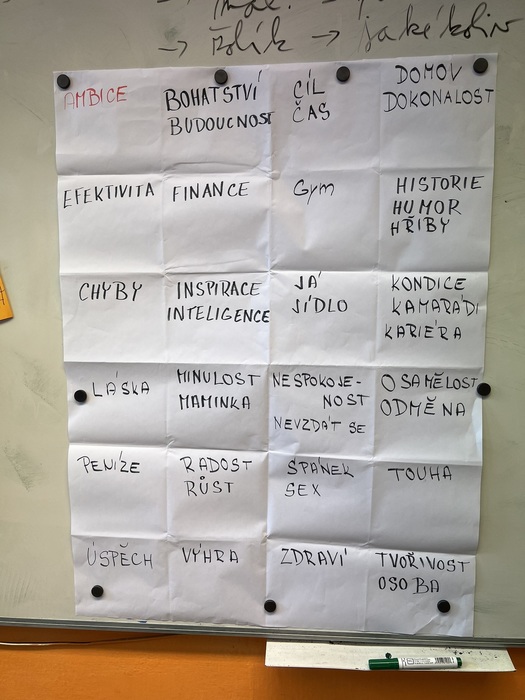 → žolík → jakékoliv
AMBICE
BOHATSTVÍ
BUDOUCNOST
CÍL
ČAS
DOMOV
DOKONALOST
EFEKTIVITA
FINANCE
Gym
HISTORIE
HUMOR
HŘIBY
CHYBY
INSPIRACE
INTELIGENCE
JÁ
JÍDLO
KONDICE
KAMARÁDI
KARIÉRA
LÁSKA
MINULOST
MAMINKA
NESPOKOJE-
NOST
NEVZDÁT SE
OSAMĚLOST
ODMĚNA
PENÍZE
RADOST
RŮST
SPÁNEK
SEX
TOUHA
ÚSPĚCH
VÝHRA
ZDRAVÍ
TVOŘIVOST
OSOBA